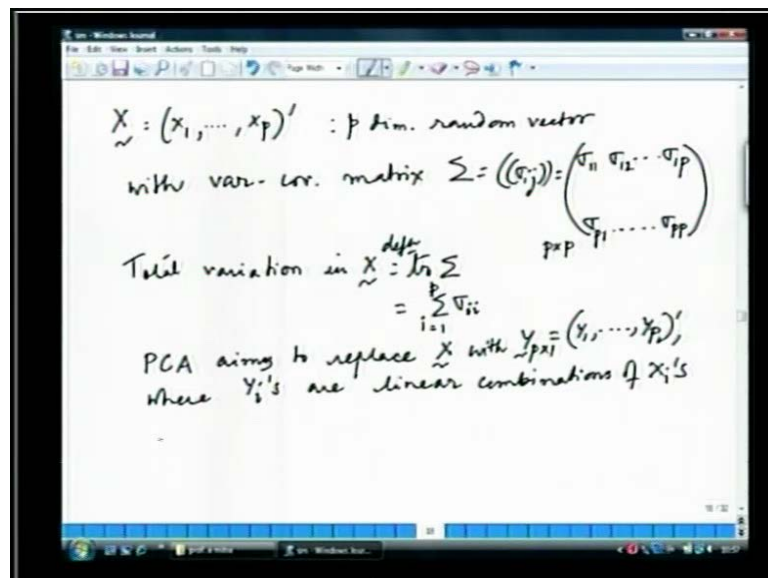 sm - Windows Journal
File Edit View Insert Actions Tools Help
Page Width
X̰ : (x₁, ..., xₚ)' : p dim. random vector
with var-cov. matrix Σ = ((σᵢⱼ)) = (σ₁₁ σ₁₂ ... σ₁ₚ
σₚ₁ ..... σₚₚ)
p×p
Total variation in X̰ defn = tr Σ
= Σᵢ₌₁ᵖ σᵢᵢ
PCA aims to replace X̰ with Y̰ₚₓ₁ = (Y₁, ..., Yₚ)',
where Yᵢ's are linear combinations of Xᵢ's
sm - Windows Jour...
10:57